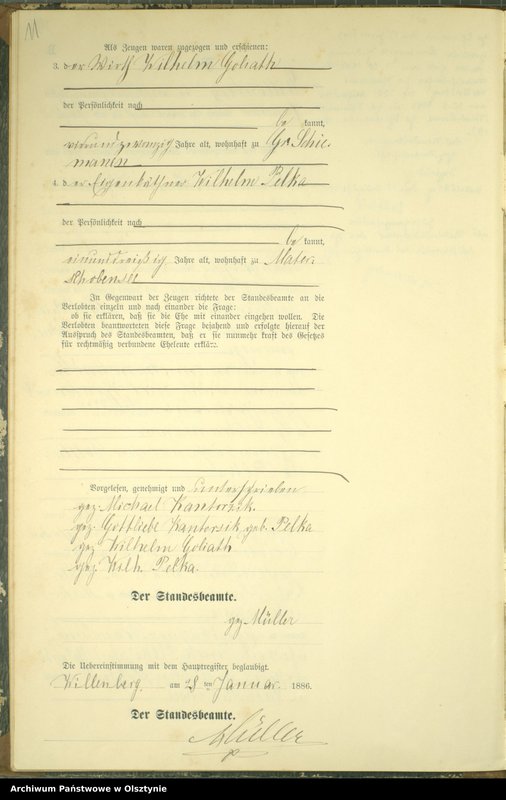 11
Als Zeugen waren zugezogen und erschienen:
3. der Wirth Wilhelm Goliath
der Persönlichkeit nach
be kannt,
vierundzwanzig Jahre alt, wohnhaft zu Gr. Schie-
manen
4. der Eigenkäthner Wilhelm Pelka
der Persönlichkeit nach
be kannt,
einunddreißig Jahre alt, wohnhaft zu Mater-
schobensee
In Gegenwart der Zeugen richtete der Standesbeamte an die
Verlobten einzeln und nach einander die Frage:
ob sie erklären, daß sie die Ehe mit einander eingehen wollen. Die
Verlobten beantworteten diese Frage bejahend und erfolgte hierauf der
Ausspruch des Standesbeamten, daß er sie nunmehr kraft des Gesetzes
für rechtmäßig verbundene Eheleute erkläre.
Vorgelesen, genehmigt und unterschrieben
gez. Michael Kantorzik.
gez. Gottliebe Kantorzik geb. Pelka
gez. Wilhelm Goliath
gez. Wilh. Pelka.
Der Standesbeamte.
gez. Müller
Die Uebereinstimmung mit dem Hauptregister beglaubigt.
Willenberg, am ten Januar 1886.
Der Standesbeamte.
Müller
Archiwum Państwowe w Olsztynie